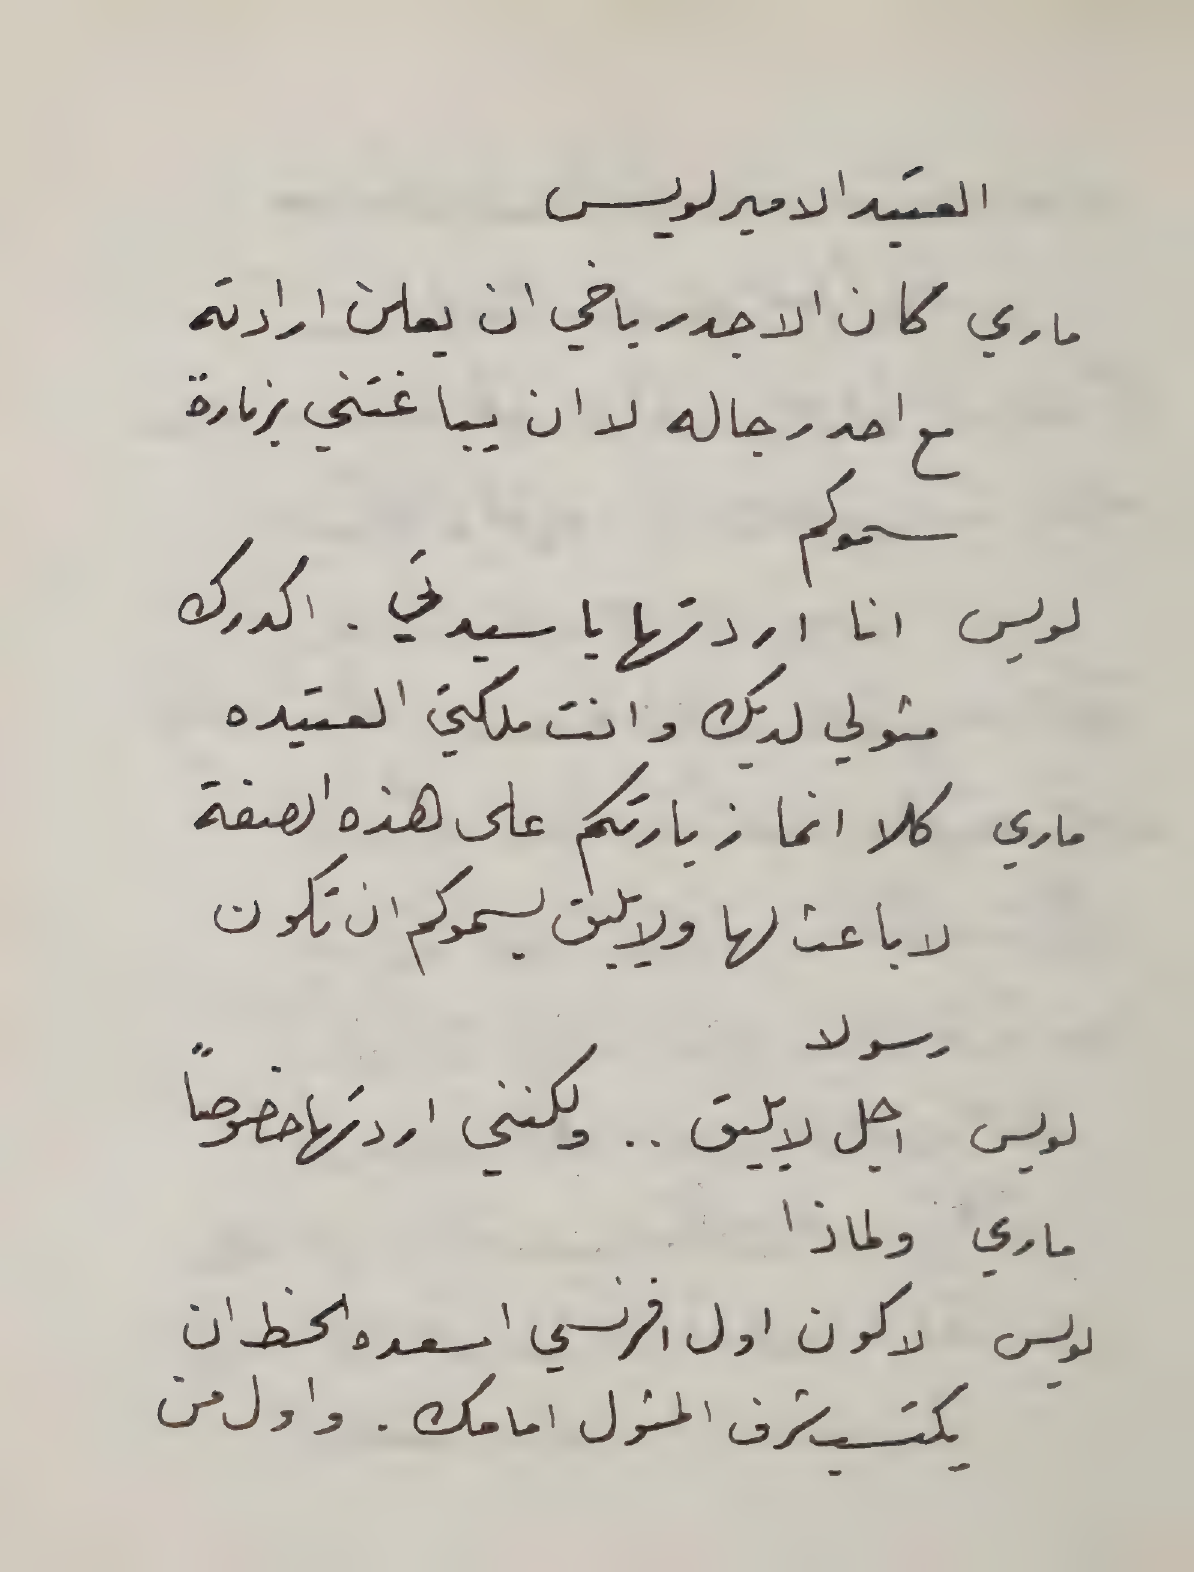 العتيد الامير لويس
ماري كان الاجدر باخي ان يعلن ارادته
مع احد رجاله لا ان يباغتني بزيارة
سموكم
لويس انا اردتها يا سيدتي . اكدرك
مثولي لديك وانت ملكتي العتيده
ماري كلا انما زيارتكم على هذه الصفة
لا باعث لها ولا يليق بسموكم ان تكون
رسولا
لويس اجل لا يليق .. ولكنني اردتها خصوصاً
ماري ولماذا
لويس لاكون اول افرنسي اسعده الحظ ان
يكتسب شرف المثول امامك . واول من